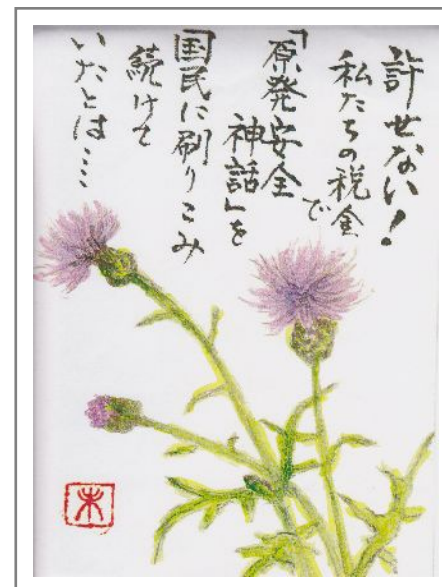 許せない！
私たちの税金で
「原発安全
神話」を
国民に刷りこみ
続けて
いたとは・・・・
木